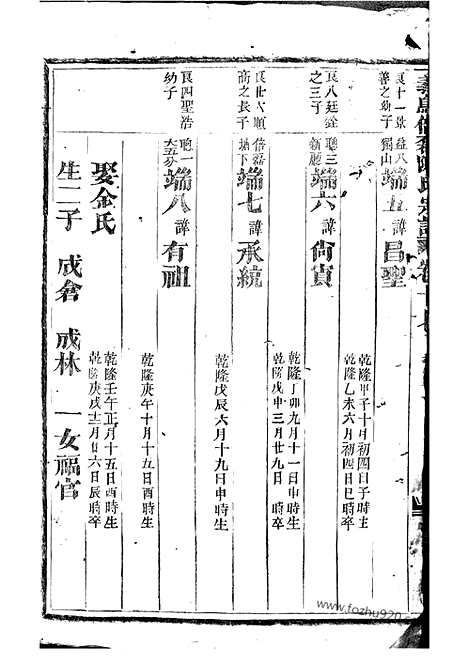 義烏倍磊陳氏宗譜
良十一景
善之幼子
益八
獨山
端五諱昌聖
乾隆甲子十月初四日子時生
乾隆乙未六月初四日巳時卒
良八廷銓
之三子
聰三
新廳
端六諱尙賓
乾隆丁卯九月十一日申時生
乾隆戊申三月廿九日 時卒
良廿六順
商之長子
倍磊
塘下
端七諱承統
乾隆戊辰六月十九日申時生
良四聖浩
幼子
聰一
大五分
端八諱有祖
乾隆庚午十月十五日酉時生
娶金氏
乾隆壬午正月十五日酉時生
乾隆庚戌十二月廿六日辰時卒
生二子 成倉 成林 一女福官
www.fozhu920